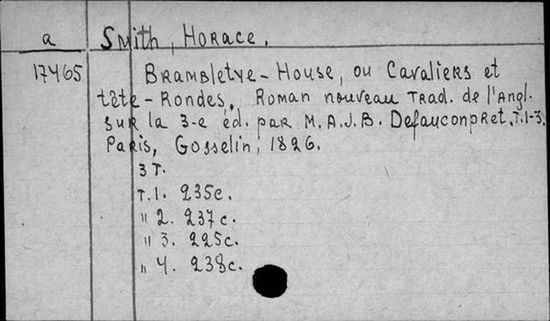 a Smith, Horace.
17465 Brambletye-House, ou Cavaliers et
tête-Rondes. Roman nouveau trad. de l'angl.
sur la 3-e éd. par M.A.J.B. Defauconpret. T.1-3.
Paris, Gosselin, 1826.
3 T.
T. 1. 235c.
" 2. 237c.
" 3. 225c.
" 4. 238c.